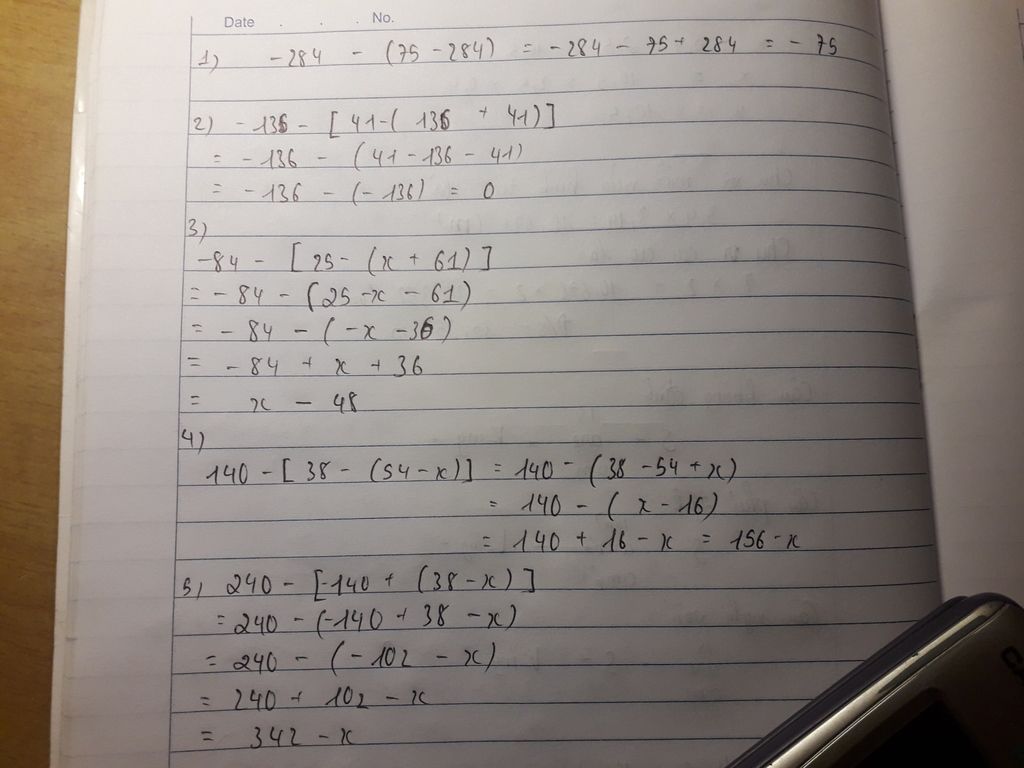 Date . . . No.
1) -284 - (75 - 284) = -284 - 75 + 284 = -75
2) -136 - [41-( 136 + 41)]
= -136 - (41 - 136 - 41)
= -136 - (-136) = 0
3)
-84 - [25 - (x + 61)]
= -84 - (25 - x - 61)
= -84 - (-x - 36)
= -84 + x + 36
= x - 48
4)
140 - [38 - (54 - x)] = 140 - (38 - 54 + x)
= 140 - (x - 16)
= 140 + 16 - x = 156 - x
5) 240 - [-140 + (38 - x)]
= 240 - (-140 + 38 - x)
= 240 - (-102 - x)
= 240 + 102 - x
= 342 - x